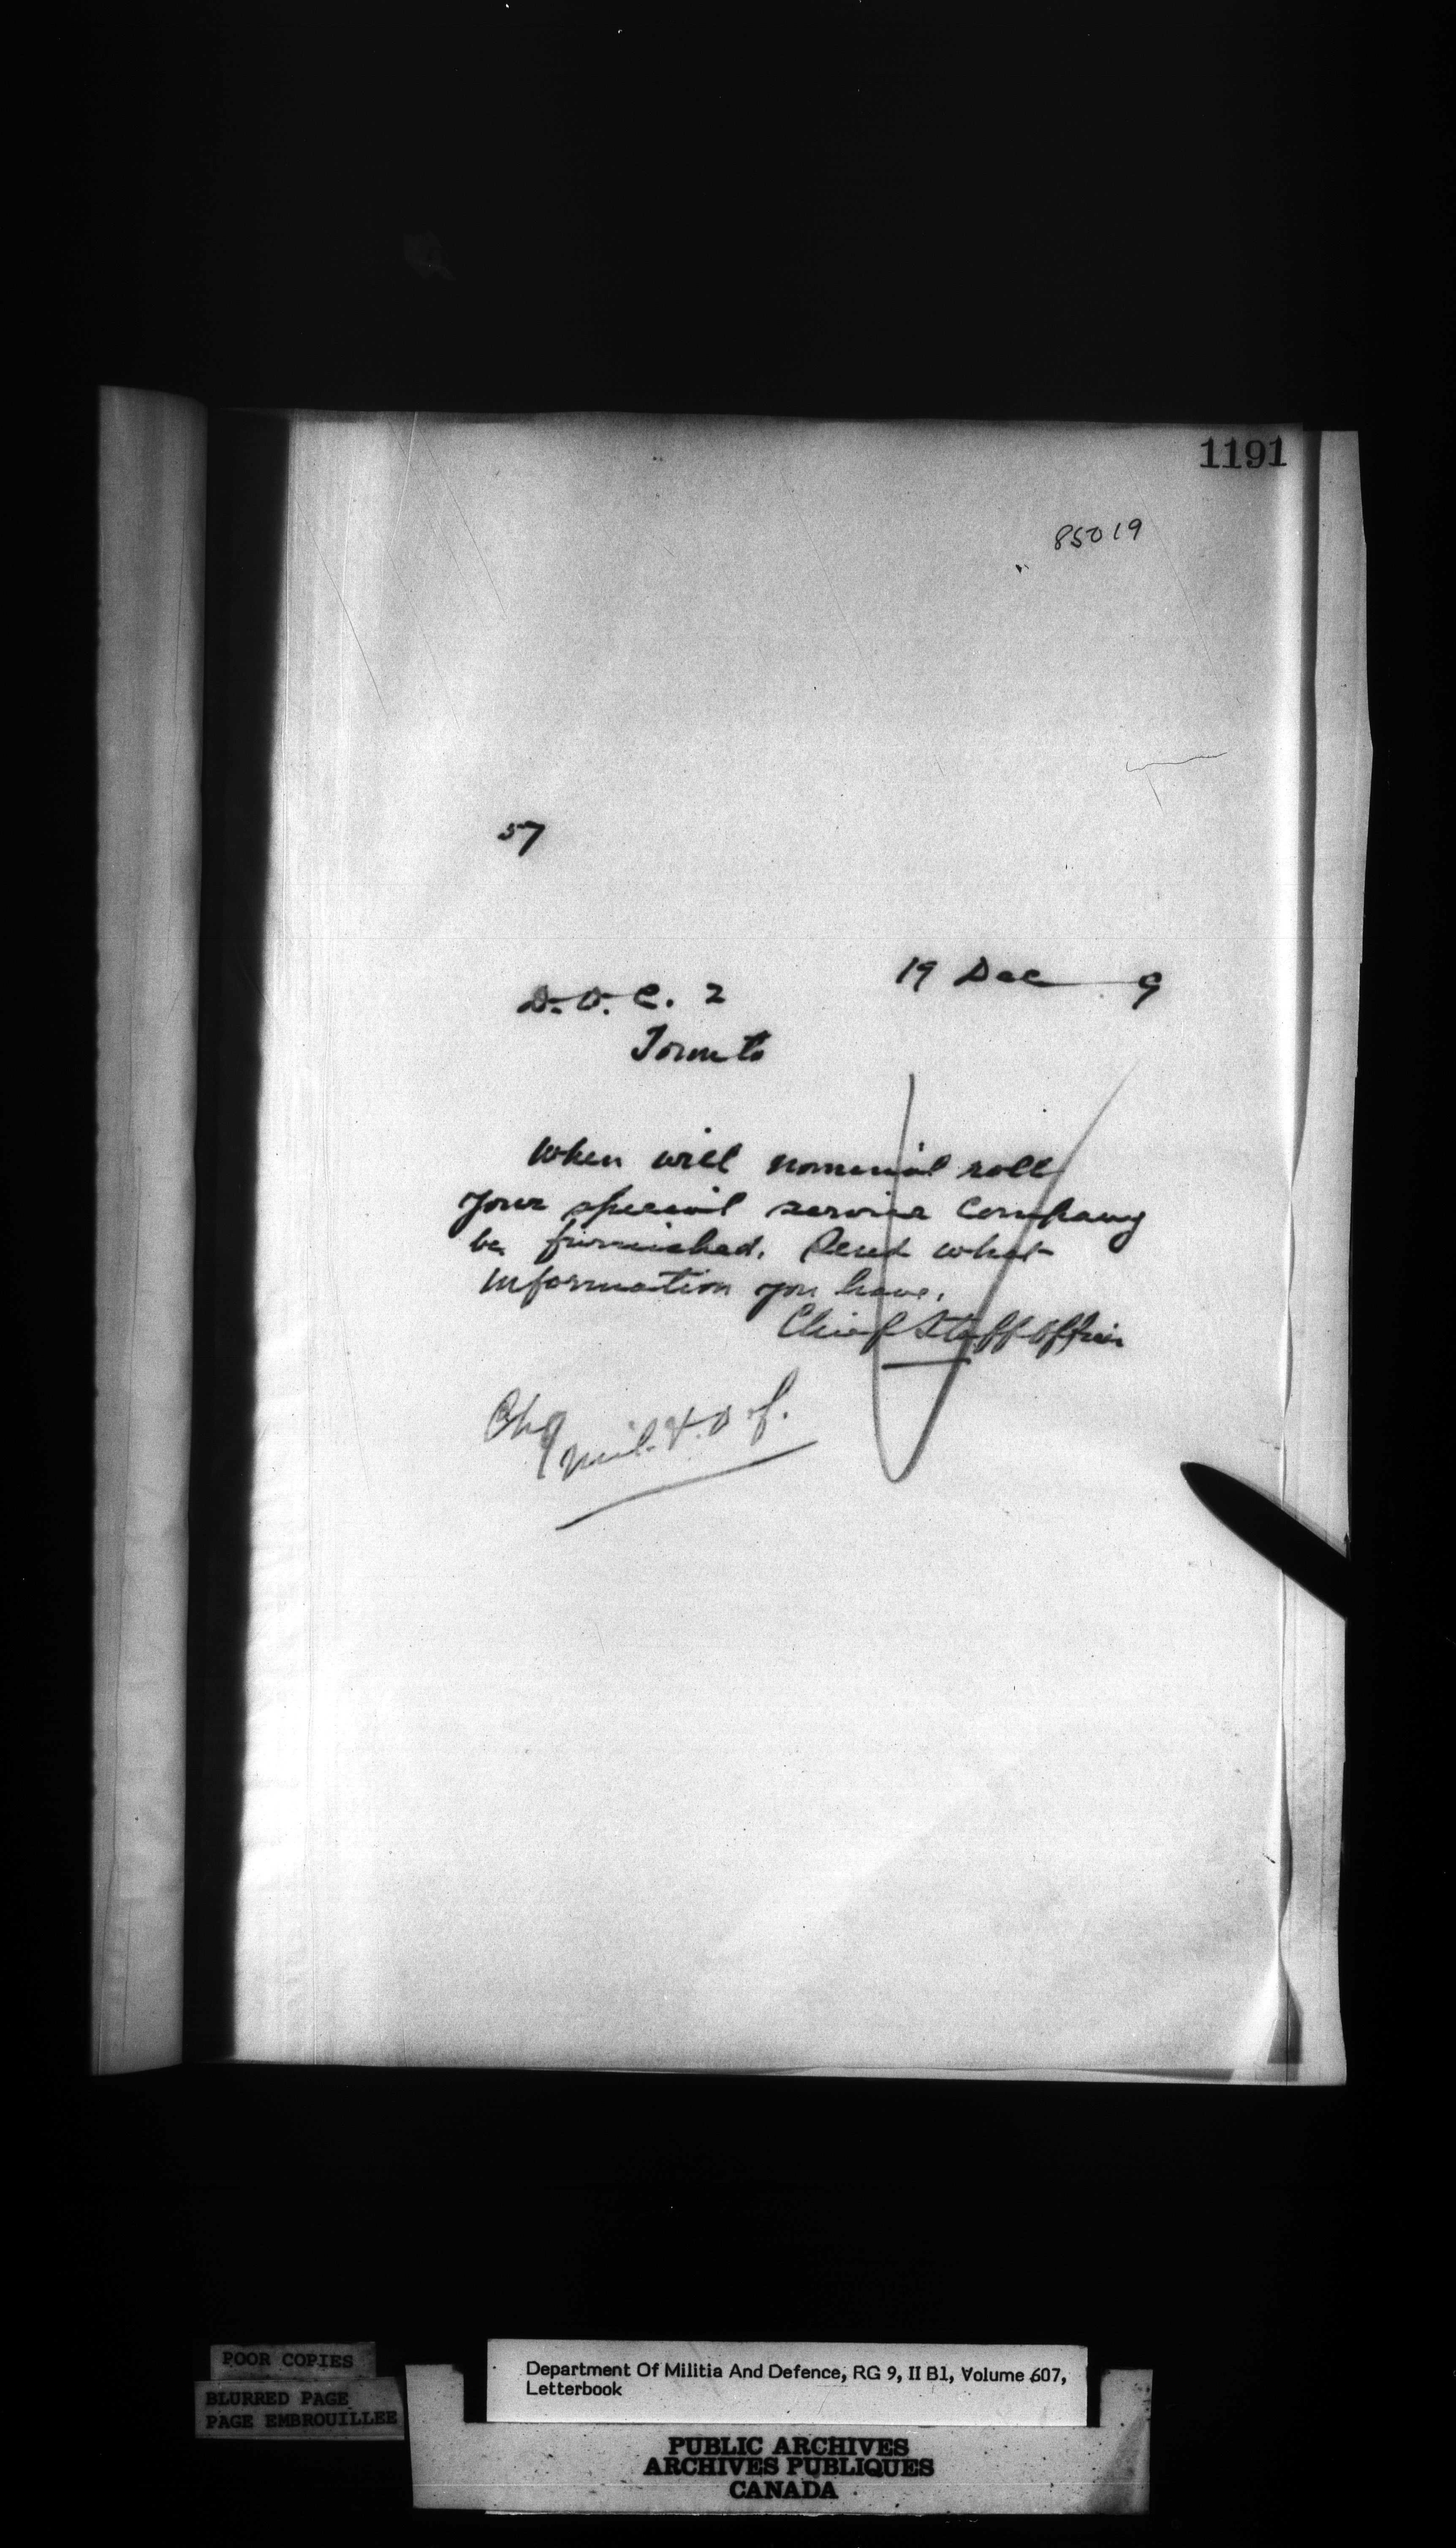 1191
85019
57
19 Dec 9
D.O.C. 2
Toronto
When will nominal roll
your special service Company
be furnished. Send what
information you have.
Chief Staff Officer
Chg
Mil. & Def.
POOR COPIES
BLURRED PAGE
PAGE EMBROUILLEE
Department Of Militia And Defence, RG 9, II B1, Volume 607,
Letterbook
PUBLIC ARCHIVES
ARCHIVES PUBLIQUES
CANADA